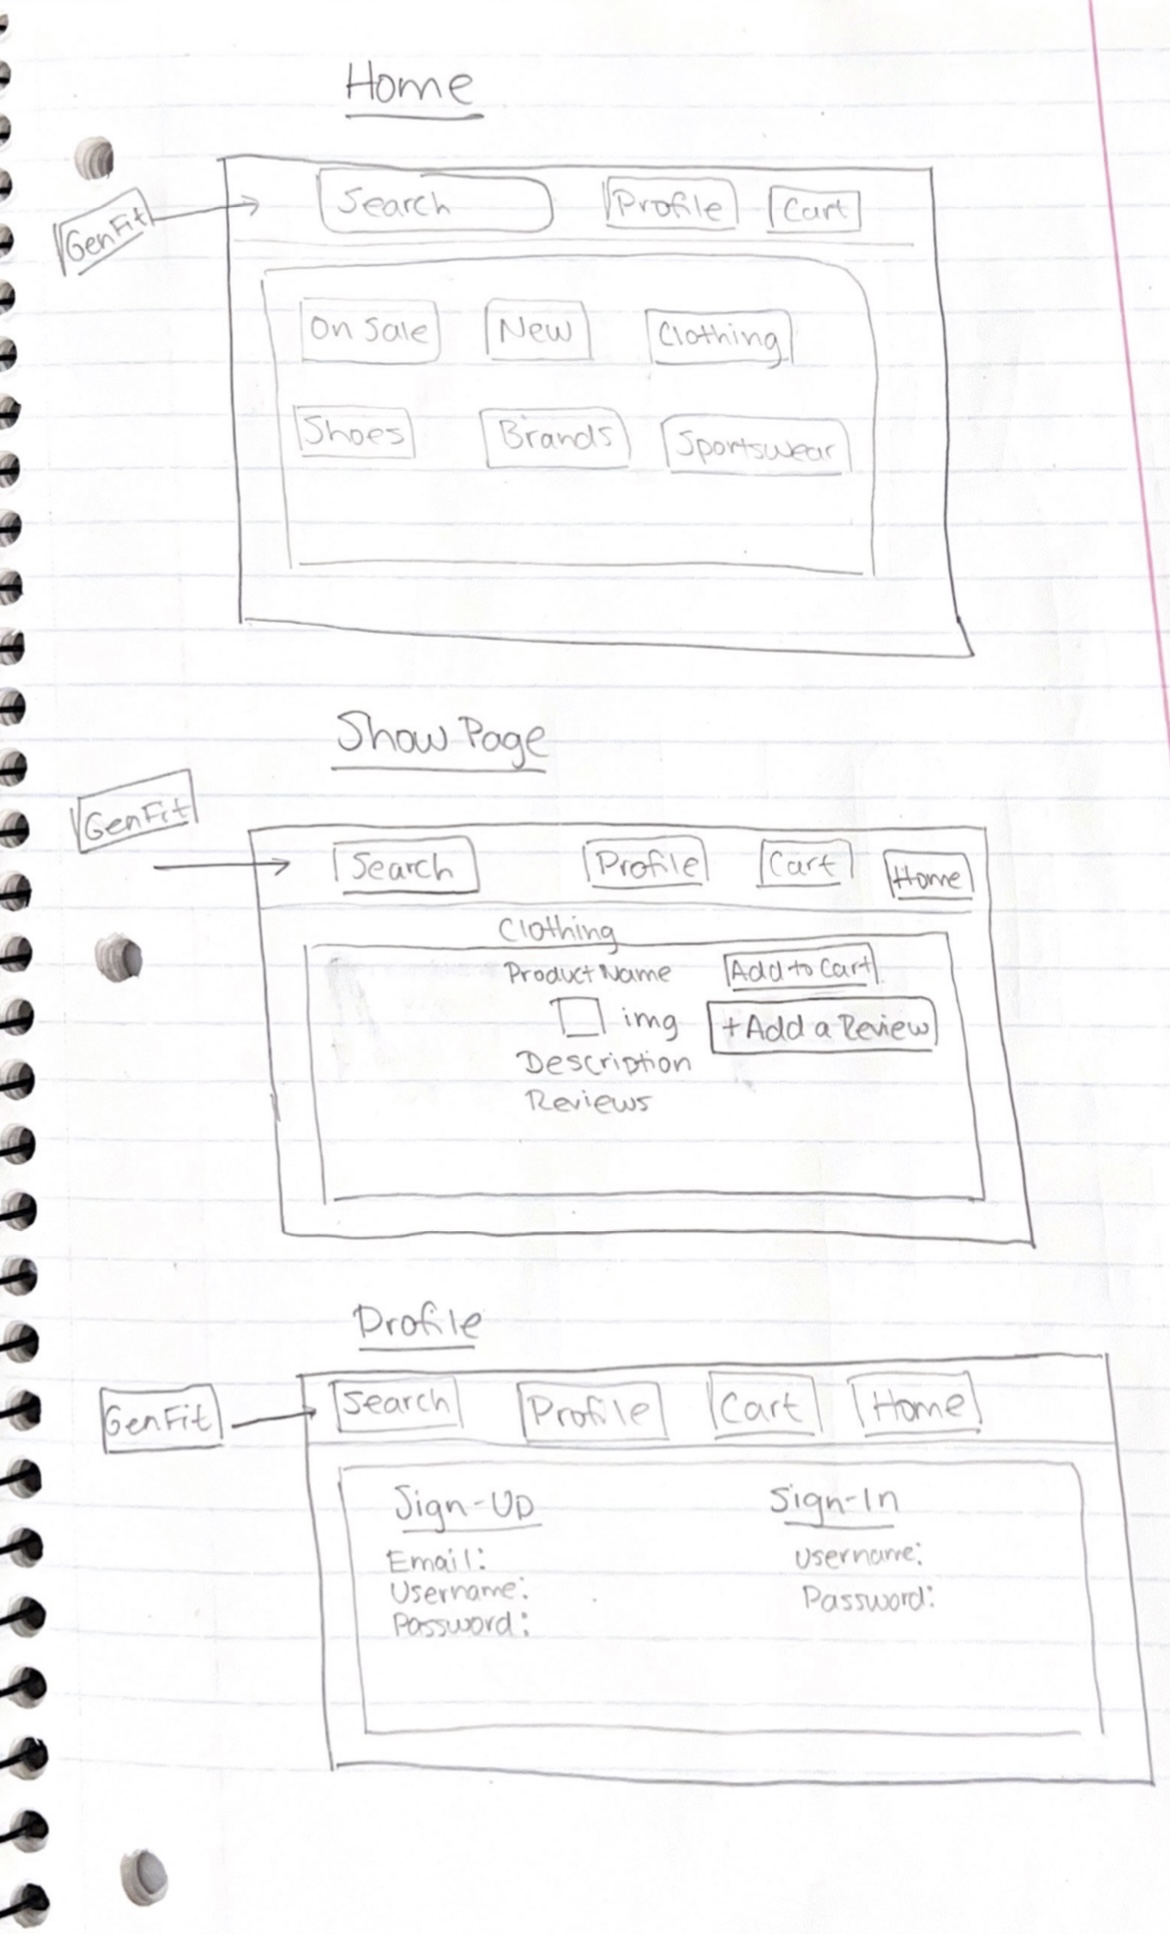 Home
GenFit
Search Profile Cart
On Sale New Clothing
Shoes Brands Sportswear
Show Page
GenFit
Search Profile Cart Home
Clothing
Product Name Add to Cart
img +Add a Review
Description
Reviews
Profile
GenFit
Search Profile Cart Home
Sign-Up Sign-In
Email: Username:
Username: Password:
Password: